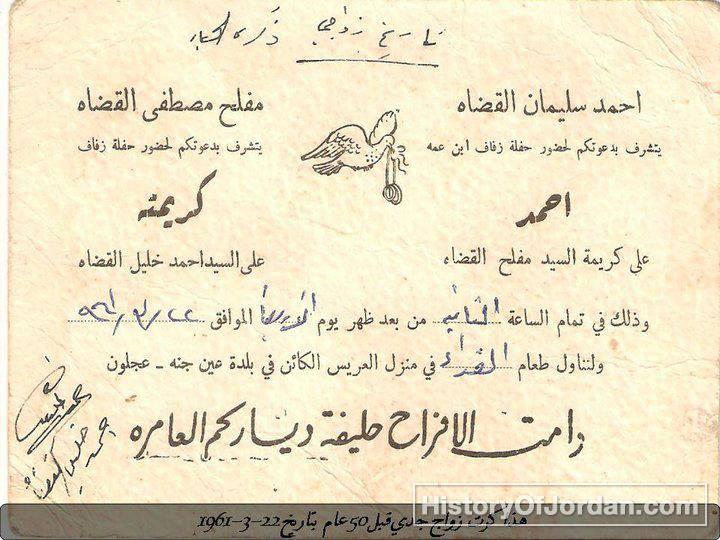 تاريخ زواجي
احمد سليمان القضاه
يتشرف بدعوتكم لحضور حفلة زفاف ابن عمه
احمد
على كريمة السيد مفلح القضاه
مفلح مصطفى القضاه
يتشرف بدعوتكم لحضور حفلة زفاف
كريمته
على السيد احمد خليل القضاه
وذلك في تمام الساعة الثانيه من بعد ظهر يوم الاربعاء الموافق ٢٢/٣/٩٦١
ولتناول طعام الغداء في منزل العريس الكائن في بلدة عين جنه - عجلون
دامت الافراح حليفة دياركم العامره
HistoryOfJordan.com
هذا كرت زواج جدي قبل 50 عام بتاريخ 22-3-1961